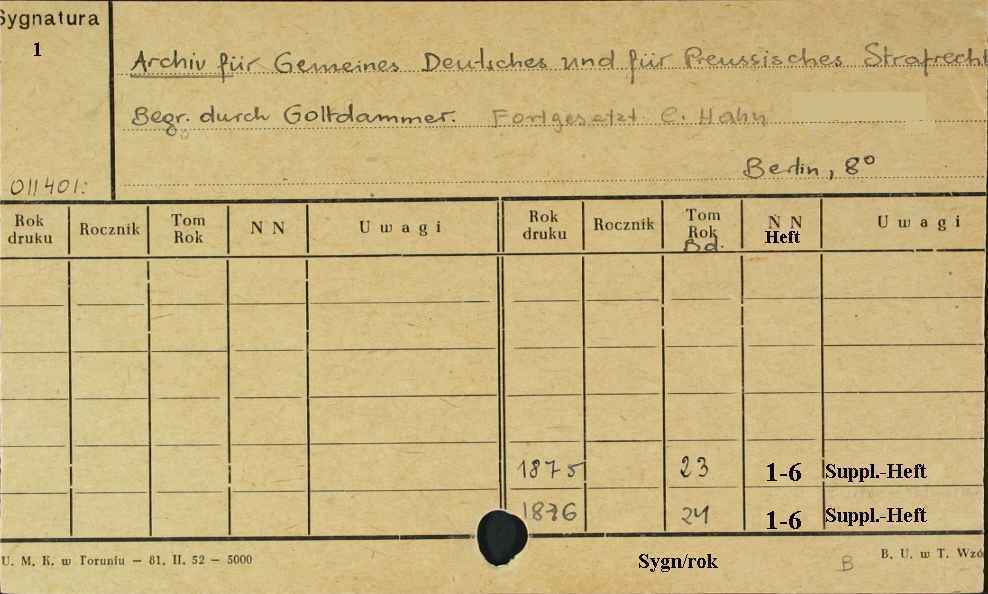 Sygnatura
1
Archiv für Gemeines Deutsches und für Preussisches Strafrecht
Begr. durch Goltdammer. Fortgesetzt C. Hahn
Berlin, 8°
011401:
Rok druku Rocznik Tom Rok N N Uwagi Rok druku Rocznik Tom Rok Bd. N N Heft Uwagi
1875 23 1-6 Suppl.-Heft
1876 24 1-6 Suppl.-Heft
U. M. K. w Toruniu — 81. II. 52 — 5000
Sygn/rok
B
B. U. w T. Wzó